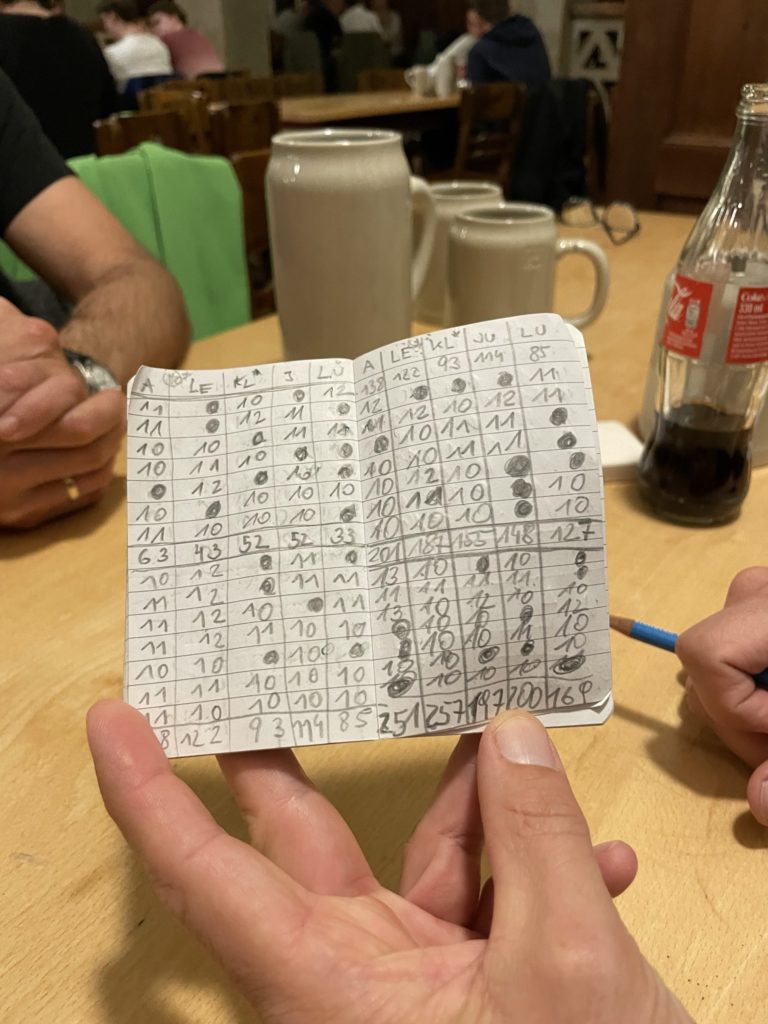 A LE KL* J LU
11 10 12
11 12 11
10 10 11 11
10 11 10
12 10
10 10 10 10
11 10 10 10
63 43 52 52 33
10 12 11
11 12 11 11
11 12 10 11
11 12 11 10 10
10 10 10
11 11 10 10 10
11 10 10 10 10
8 122 93 114 85
A LE KL* JU LU
138 122 93 114 85
12 11
12 10 12 11
10 11 11
10 12 10 11
10 10
10 10 10 10
10 10 10
201 187 155 148 127
13 10 10
11 11 11 11
13 10 12 10 10
10 10 12
10 10 11 10
13 10 10
10 10 10
251 257 197 200 169
Coke
330 ml